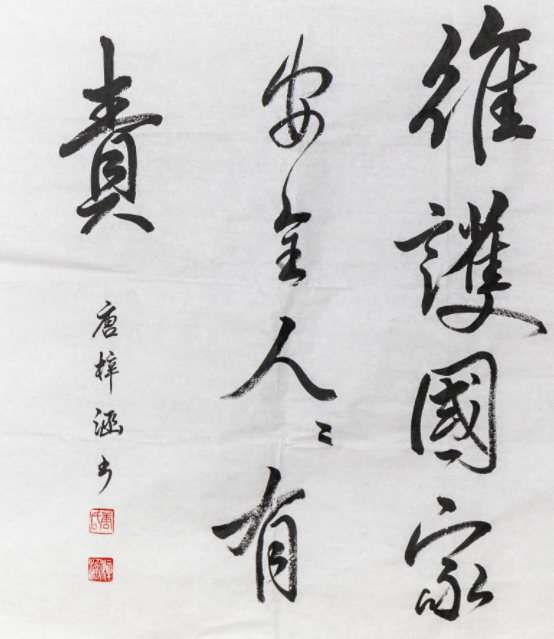 維護國家
安全人〻有
責
唐梓涵书
唐氏